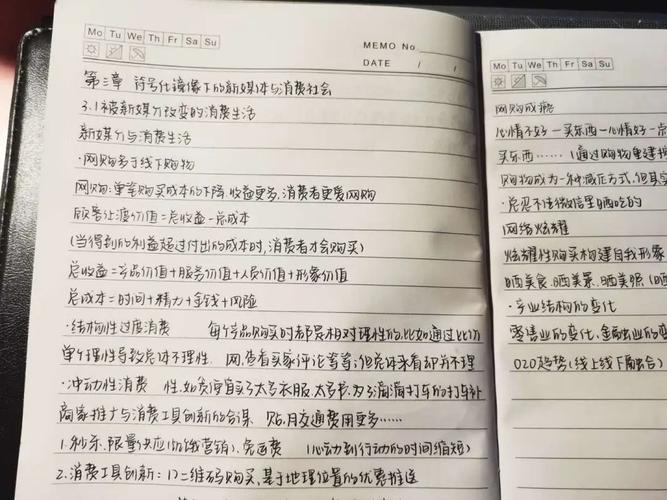 Mo Tu We Th Fr Sa Su
MEMO No.
DATE / /
第三章 符号化镜像下的新媒体与消费社会
3.1被新媒介改变的消费生活
新媒介与消费生活
·网购多于线下购物
网购:单笔购买成本的下降,收益更多,消费者更爱网购
顾客让渡价值=总收益-总成本
(当得到的利益超过付出的成本时,消费者才会购买)
总收益=产品价值+服务价值+人员价值+形象价值
总成本=时间+精力+金钱+风险
·结构性过度消费 每件产品购买时都是相对理性的,比如通过比价
单个理性导致总体不理性. 网,查看买家评论等等;但总体来看却并不理
·冲动性消费 性,如贪便宜买了太多衣服,太多书,为了滴滴打车的打车补
商家推广与消费工具创新的合谋 贴,月交通费用更多……
1.秒杀、限量供应(饥饿营销)、免运费 (心动到行动的时间缩短)
2.消费工具创新:1)二维码购买,基于地理位置的优惠推送
Mo Tu We Th Fr Sa Su
网购成瘾
心情不好—买东西—心情好—
买东西……(通过购物重建
购物成为一种减压方式,但其实
·总忍不住微信里晒吃的
网络炫耀
炫耀性购买构建自我形象
晒美食、晒美景、晒美照
·产业结构的变化
零售业的变化、金融业的变
O2O趋势(线上线下融合)